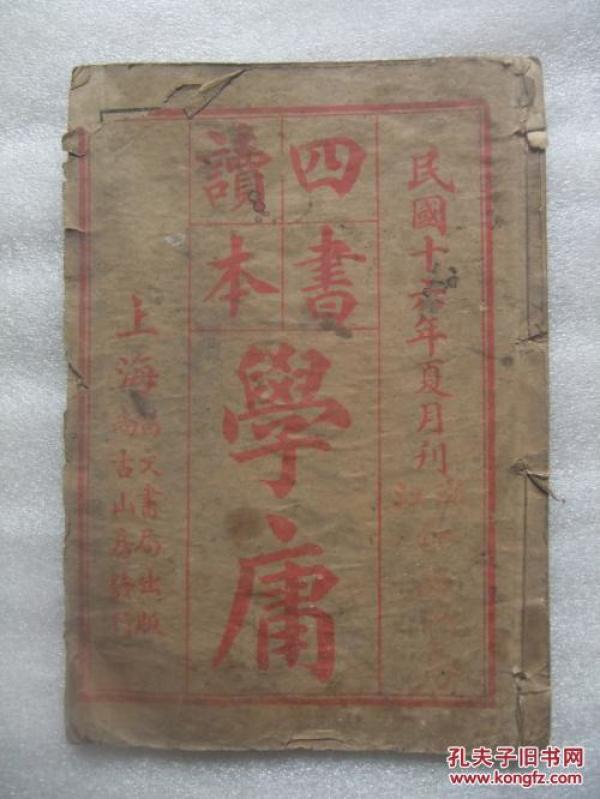 民國十六年夏月刊
四書
讀本
學庸
上海
文書局出版
尚古山房發行
孔夫子旧书网
www.kongfz.com